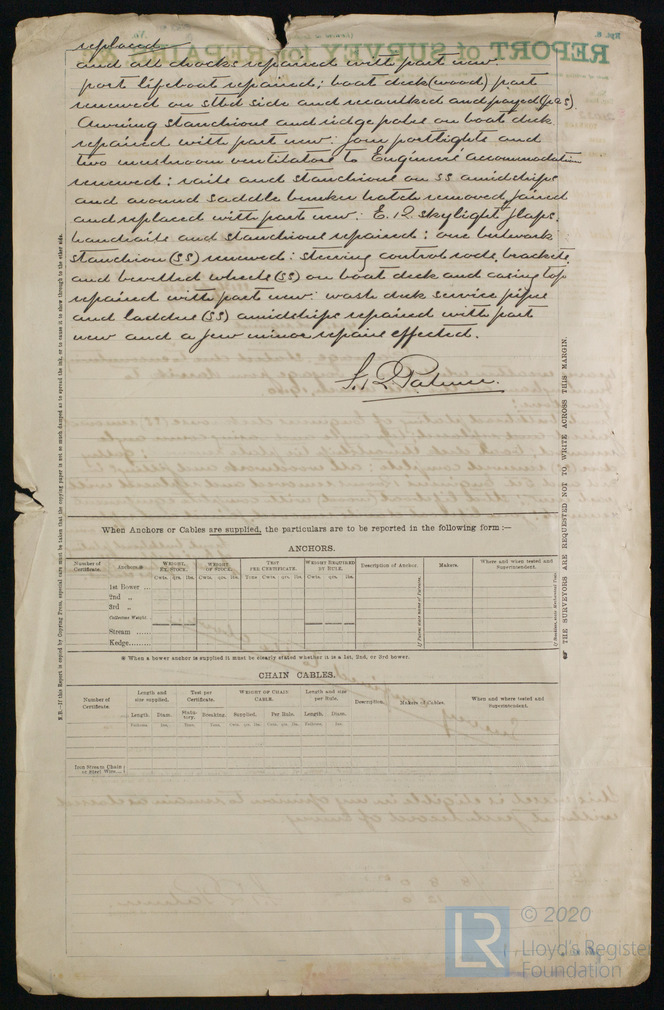 replaced
and all chocks repaired with part new
port lifeboat repaired; boat deck (wood) part
renewed on stbd side and recaulked and payed (p&s).
Awning stanchions and ridge poles on boat deck
repaired with part new: four portlights and
two mushroom ventilators to Engineers accommodation
renewed: rails and stanchions on SS amidships
and around saddle bunker hatch removed, faired
and replaced with part new: E.R. skylight flaps,
handrails and stanchions repaired: one bulwark
stanchion (SS) renewed: steering control rods, brackets
and bevelled wheels (SS) on boat deck and casing top
repaired with part new: wash deck service pipes
and ladders (SS) amidships repaired with part
new and a few minor repairs effected.
Palmer.
When Anchors or Cables are supplied, the particulars are to be reported in the following form :—
ANCHORS.
Number of Certificate. Anchors.* WEIGHT, EX. STOCK. WEIGHT OF STOCK. TEST PER CERTIFICATE. WEIGHT REQUIRED BY RULE. Description of Anchor. Makers. Where and when tested and Superintendent.
Cwts. qrs. lbs. Cwts. qrs. lbs. Tons Cwts. qrs. lbs. Cwts. qrs. lbs.
1st Bower ...
2nd „
3rd „
Collective Weight.
Stream ......
Kedge.......
* When a bower anchor is supplied it must be clearly stated whether it is a 1st, 2nd, or 3rd bower.
CHAIN CABLES.
Number of Certificate. Length and size supplied. Test per Certificate. WEIGHT OF CHAIN CABLE. Length and size per Rule. Description. Makers of Cables. When and where tested and Superintendent.
Length. Diam. Statutory. Breaking. Supplied. Per Rule. Length. Diam.
Fathoms. Ins. Tons. Tons. Cwts. qrs. lbs. Cwts. qrs. lbs. Fathoms. Ins.
Iron Stream Chain or Steel Wire...
N.B.—If this Report is copied by Copying Press, especial care must be taken that the copying paper is not so much damped as to spread the ink, or to cause it to show through to the other side.
THE SURVEYORS ARE REQUESTED NOT TO WRITE ACROSS THIS MARGIN.
REPORT of SURVEY for REPAIRS &
LR
© 2020
Lloyd's Register
Foundation